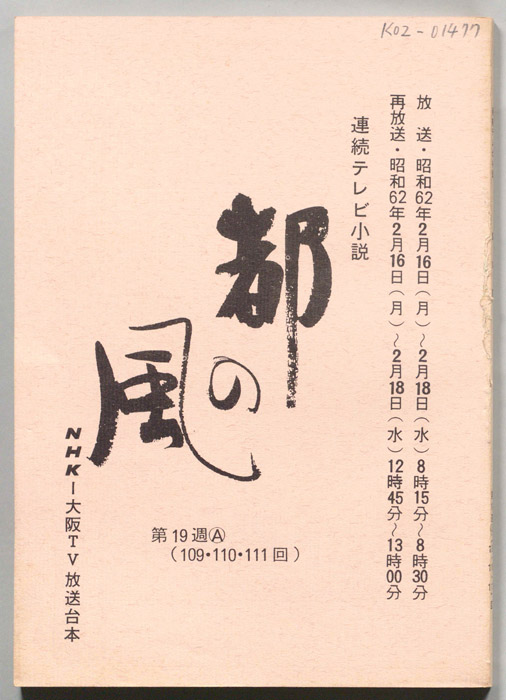 K02-01477
放 送・昭和62年2月16日（月）～2月18日（水）8時15分～8時30分
再放送・昭和62年2月16日（月）～2月18日（水）12時45分～13時00分
連続テレビ小説
都の風
第19週Ⓐ
（109・110・111回）
NHK－大阪TV放送台本